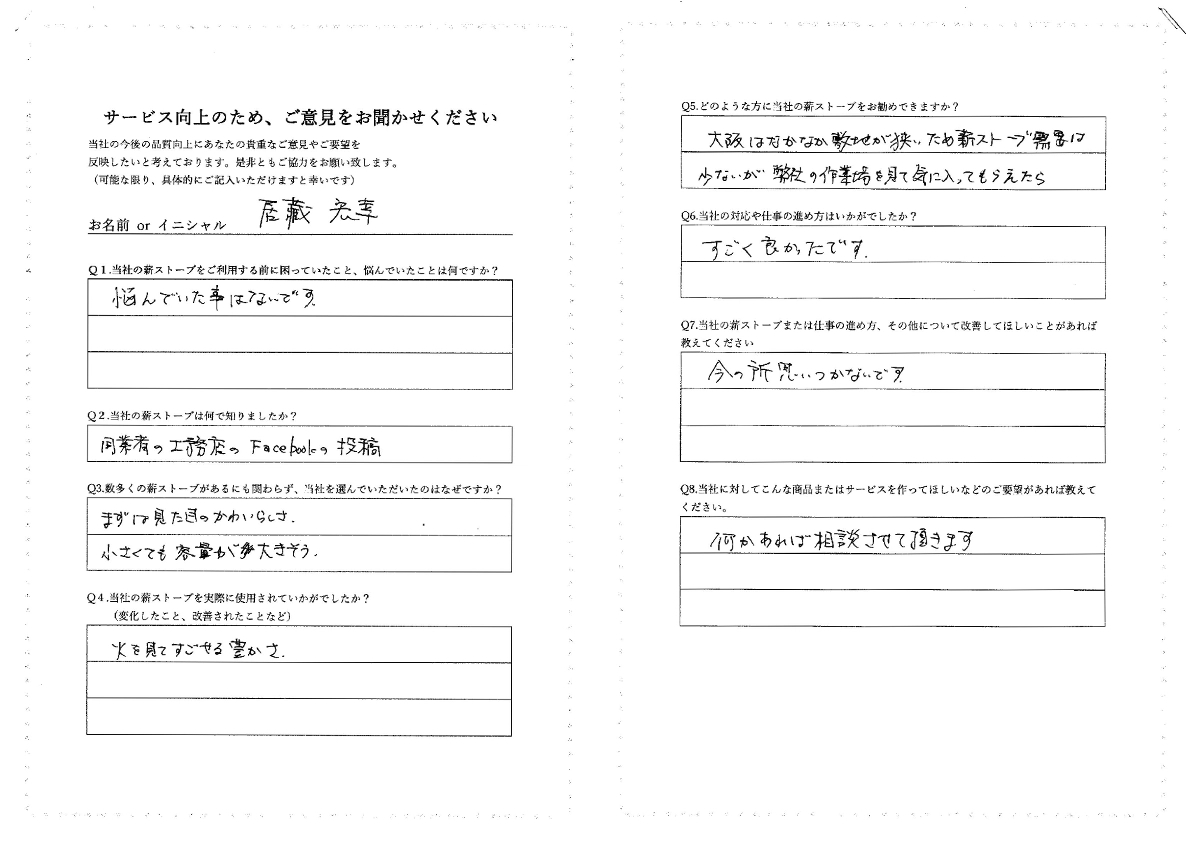 サービス向上のため、ご意見をお聞かせください
当社の今後の品質向上にあなたの貴重なご意見やご要望を
反映したいと考えております。是非ともご協力をお願い致します。
（可能な限り、具体的にご記入いただけますと幸いです）
お名前 or イニシャル 居蔵 宏幸
Q１.当社の薪ストーブをご利用する前に困っていたこと、悩んでいたことは何ですか？
悩んでいた事はないです。
Q２.当社の薪ストーブは何で知りましたか？
同業者の工務店のFacebookの投稿
Q3.数多くの薪ストーブがあるにも関わらず、当社を選んでいただいたのはなぜですか？
まずは見た目のかわいらしさ.
小さくても容量が大きそう.
Q４.当社の薪ストーブを実際に使用されていかがでしたか？
（変化したこと、改善されたことなど）
火を見てすごせる豊かさ.
Q5.どのような方に当社の薪ストーブをお勧めできますか？
大阪はなかなか敷地が狭いため薪ストーブ需要は
少ないが 弊社の作業場を見て気に入ってもらえたら
Q6.当社の対応や仕事の進め方はいかがでしたか？
すごく良かったです.
Q7.当社の薪ストーブまたは仕事の進め方、その他について改善してほしいことがあれば
教えてください
今の所思いつかないです
Q8.当社に対してこんな商品またはサービスを作ってほしいなどのご要望があれば教えて
ください。
何かあれば相談させて頂きます